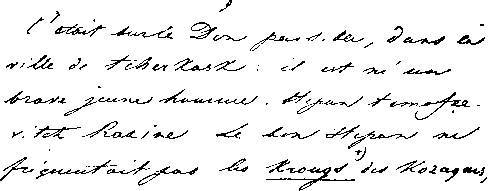 C'était sur le Don paisible, dans la
ville de Tcherkask : il est né un
brave jeune homme, Stepan Timofée-
vitch Razine Le bon Stepan ne
fréquentait pas les Krougs ¹) des Kozaques,